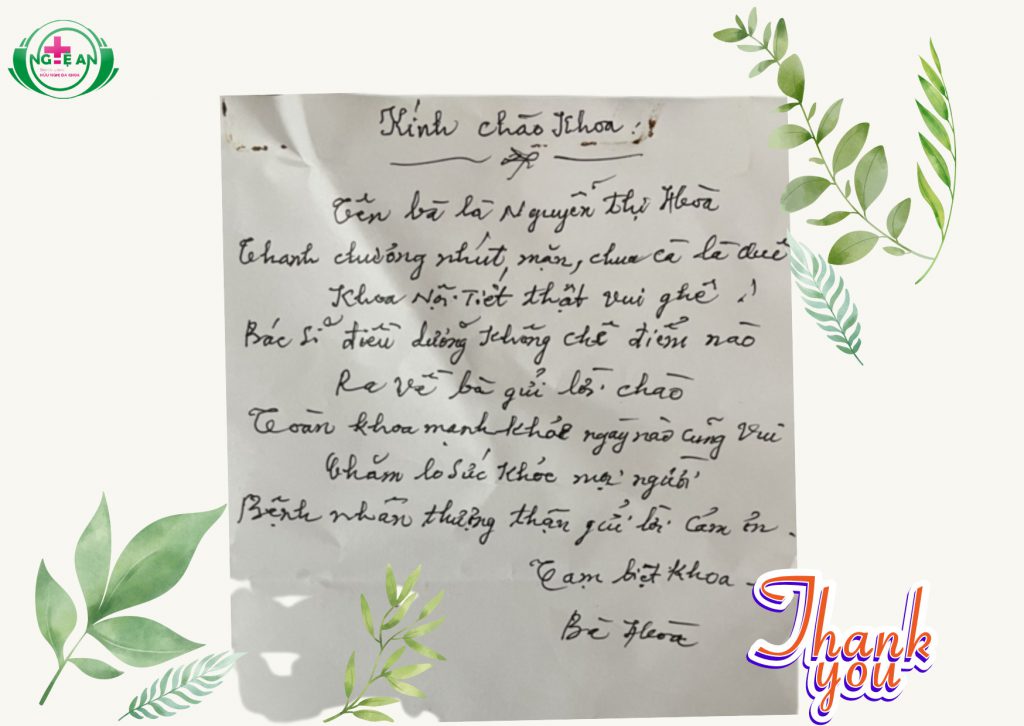 NGHỆ AN
HỮU NGHỊ ĐA KHOA
Kính chào Khoa:
Tên bà là Nguyễn Thị Hòa
Thanh chương nhút, mặn, chua cà là quê
Khoa Nội-Tiết thật vui ghê !
Bác sĩ điều dưỡng không chê điểm nào
Ra về bà gửi lời chào
Toàn khoa mạnh khỏe ngày nào cũng vui
Chăm lo sức khỏe mọi người
Bệnh nhân thượng thận gửi lời cảm ơn.
Tạm biệt Khoa -
Bà Hòa
Thank you